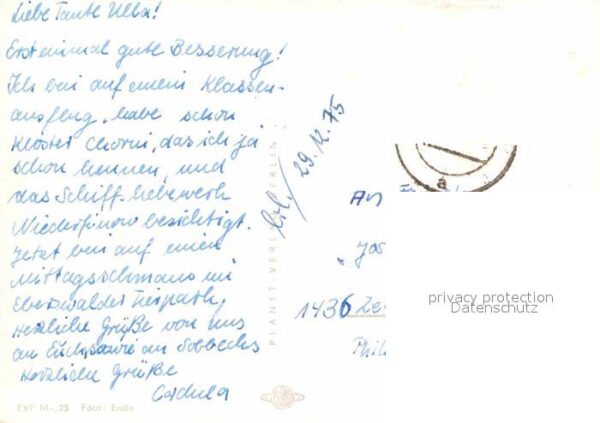 Liebe Tante Ulla!
Ersteinmal gute Besserung!
Ich bin auf einem Klassen-
ausflug, habe schon
Kloster Chorin, das ich ja
schon kennen, und
das Schiffshebewerk
Niederfinow besichtigt.
Jetzt bin auf einen
Mittagsschmaus im
Eberswalder Tierpark,
Herzliche Grüße von uns
an Euch, sowie an
Herzliche Grüße
Cordula
EVP M -,25 Foto: Ende
PLANET VERLAG BERLIN
29.12.75
An
Jos
1436 Ze
Phil
privacy protection
Datenschutz